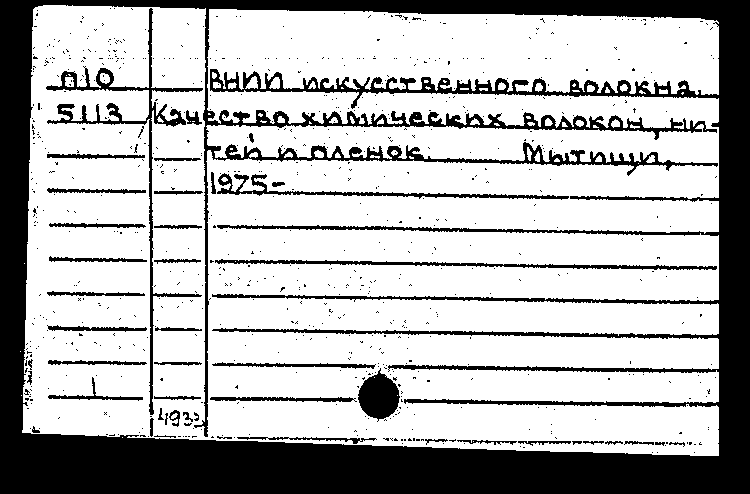 П10 ВНИИ искусственного волокна.
5113 Качество химических волокон, ни-
тей и пленок. Мытищи,
1975-
4933